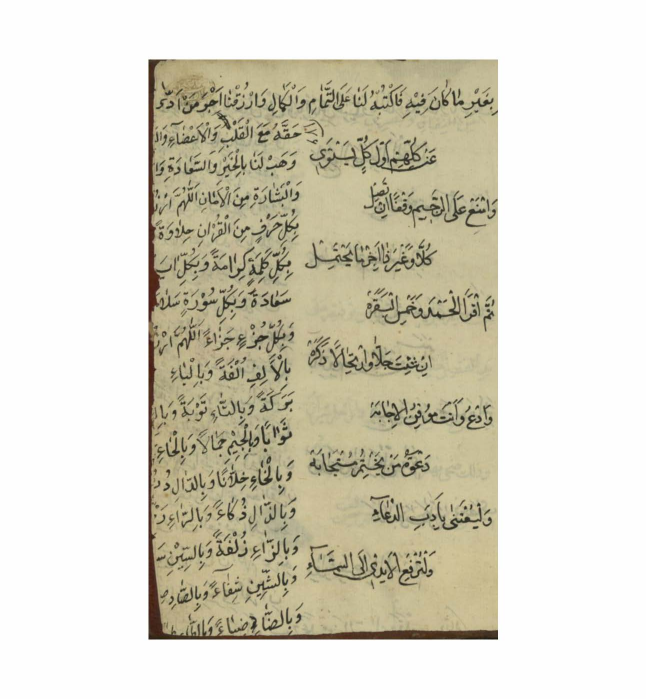 بِغَيْرِ مَا كَانَ فِيهِ فَاكْتُبْهُ لَنَا عَلَى التَّمَامِ وَالْكَمَالِ وَارْزُقْنَا اَجْرَ مَنْ اَدّى
عن كلهم اول كل يستوي
وامنع على الرحيم وقفا ان تصل
كلا وغير ذا يحتمل
ثم اقرأ الحمد وخمس البقرة
ان شئت حلا وارتحالا ذكره
وادع وانت موقن الاجابة
دعوة من يختم مستجابة
وليعتنى بادب الدعاء
ولترفع الايدي الى السماء
حَقَّهُ مَعَ الْقَلْبِ وَالْاَعْضَاءِ
وَهَبْ لَنَا بِالْخَيْرِ وَالسَّعَادَةِ
وَالْبَشَارَةِ مِنَ الْاَمَانِ اَللّهُمَّ
بِكُلِّ حَرْفٍ مِنَ الْقُرْانِ حَلَاوَةً
بِكُلِّ كَلِمَةٍ كَرَامَةً وَبِكُلِّ
سَعَادَةً وَبِكُلِّ سُورَةٍ
وَبِكُلِّ جُزْءٍ جَزَاءً اَللّهُمَّ
بِالْاَلِفِ اُلْفَةً وَبِالْبَاءِ
بَرَكَةً وَبِالتَّاءِ تَوْبَةً
ثَوَابًا وَبِالْجِيمِ جَمَالًا وَبِالْحَاءِ
وَبِالْخَاءِ خِلَّانًا وَبِالدَّالِ
وَبِالذَّالِ ذُكَاءً وَبِالرَّاءِ
وَبِالزَّاءِ زُلْفَةً وَبِالسِّينِ
وَبِالشِّينِ شِفَاءً وَبِالصَّادِ
وَبِالضَّادِ ضِيَاءً وَبِالطَّاءِ